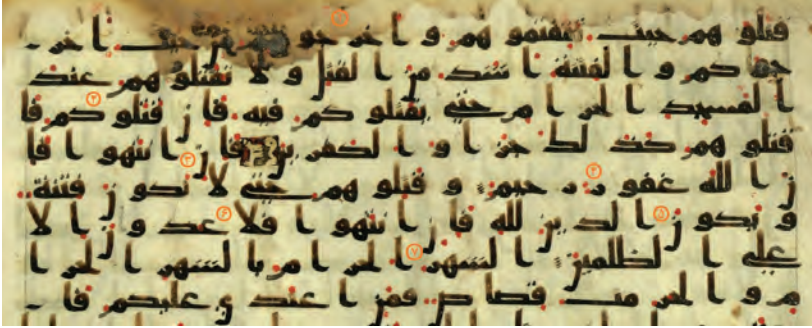 ١
قتلوهم حيث ثقفتموهم واخرجوهم من حيث اخر
جوكم والفتنة اشد من القتل ولا تقتلوهم عند
المسجد الحرام حتى يقتلوكم فيه فان قتلوكم ٢ فا
قتلوهم كذلك جزاو الكفرين فان ٣ انتهوا فا
ن الله غفور ٤ رحيم وقتلوهم حتى لا تكون فتنة
ويكون ٥ الدين لله فان انتهوا فلا ٦ عدون الا
على الظلمين الشهر ٧ الحرام بالشهر الحرا
م والحرمت قصاص فمن اعتدى عليكم فا